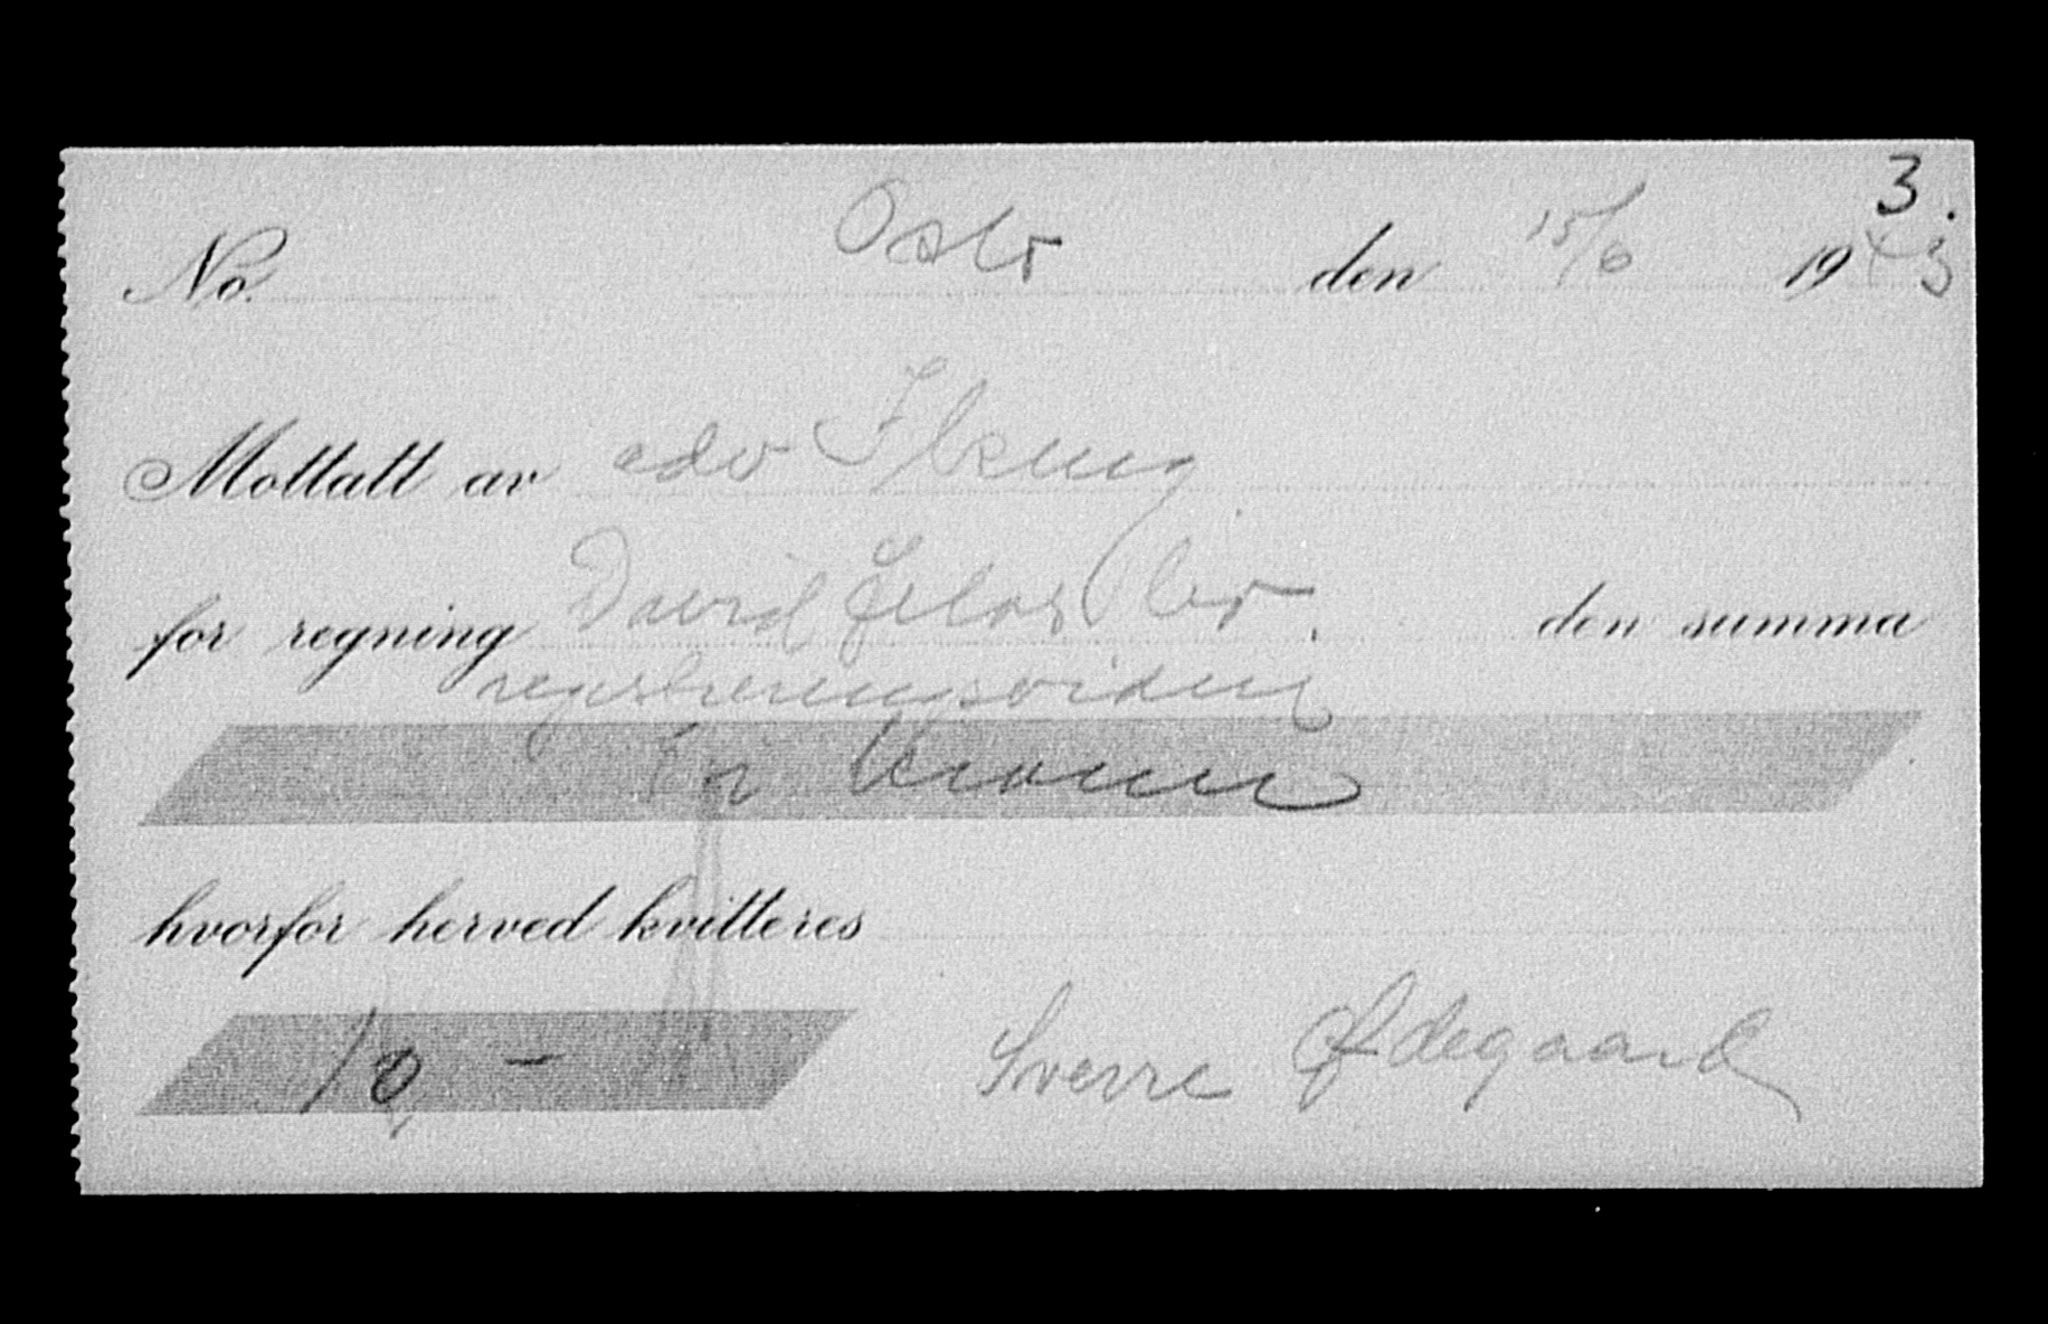 3.
No. Oslo den 15/6 1943
Mottatt av adv
for regning David bo. den summa
registreringsvidne
Ti Kroner
hvorfor herved kvitteres
10 - Sverre Ødegaard